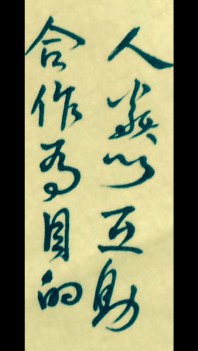 人類以互助
合作為目的